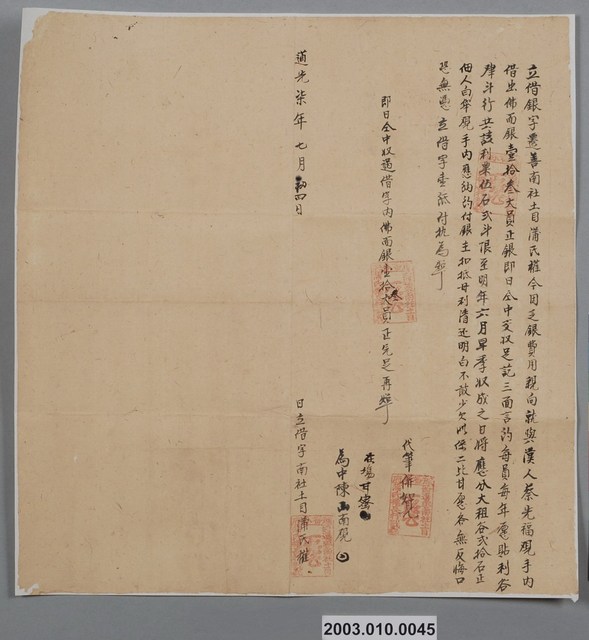 立借銀字遷善南社土目蒲氏權今因乏銀費用親向就與漢人蔡光福觀手內
借出佛面銀壹拾叁大員正銀即日仝中交收足訖三面言約每員每年愿貼利谷
肆斗行共該利粟伍石弍斗限至明年六月早季收成之日將應分大租谷弍拾石正
佃人自牵觀手內愿約付銀主扣抵母利清还明白不敢少欠此係二比甘愿各無反悔口
恐無憑立借字壹紙付执為炤
即日仝中收過借字内佛面銀壹拾叁大員正完足再炤
代筆
在場甘
為中陳南觀
道光柒年七月初四日
日立借字南社土目蒲氏權
2003.010.0045